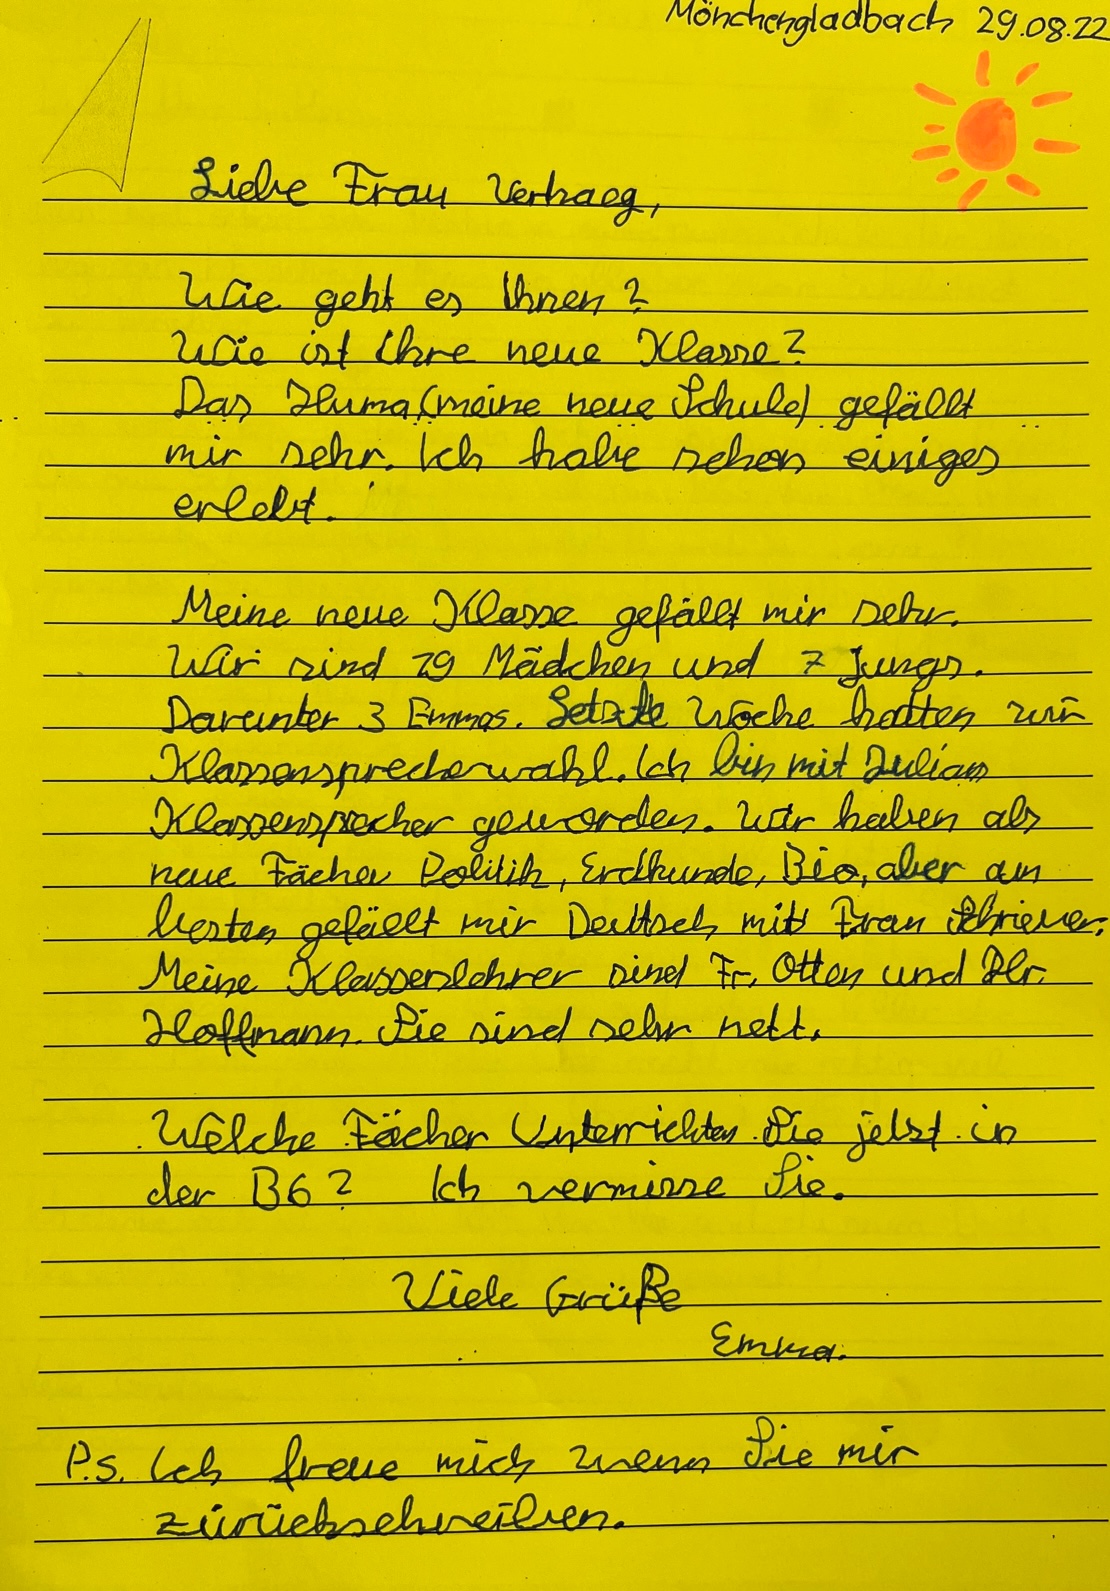 Mönchengladbach 29.08.22
Liebe Frau Verhaeg,
Wie geht es Ihnen?
Wie ist Ihre neue Klasse?
Das Huma (meine neue Schule) gefällt
mir sehr. Ich habe schon einiges
erlebt.
Meine neue Klasse gefällt mir sehr.
Wir sind 19 Mädchen und 7 Jungs.
Darunter 3 Emmas. Letzte Woche hatten wir
Klassensprecherwahl. Ich bin mit Julian
Klassensprecher geworden. Wir haben als
neue Fächer Politik, Erdkunde, Bio, aber am
besten gefällt mir Deutsch mit Frau Schriever.
Meine Klassenlehrer sind Fr. Otten und Hr.
Hoffmann. Sie sind sehr nett.
Welche Fächer Unterrichten Sie jetzt in
der B6? Ich vermisse Sie.
Viele Grüße
Emma.
P.s. Ich freue mich wenn Sie mir
zürückschreiben.